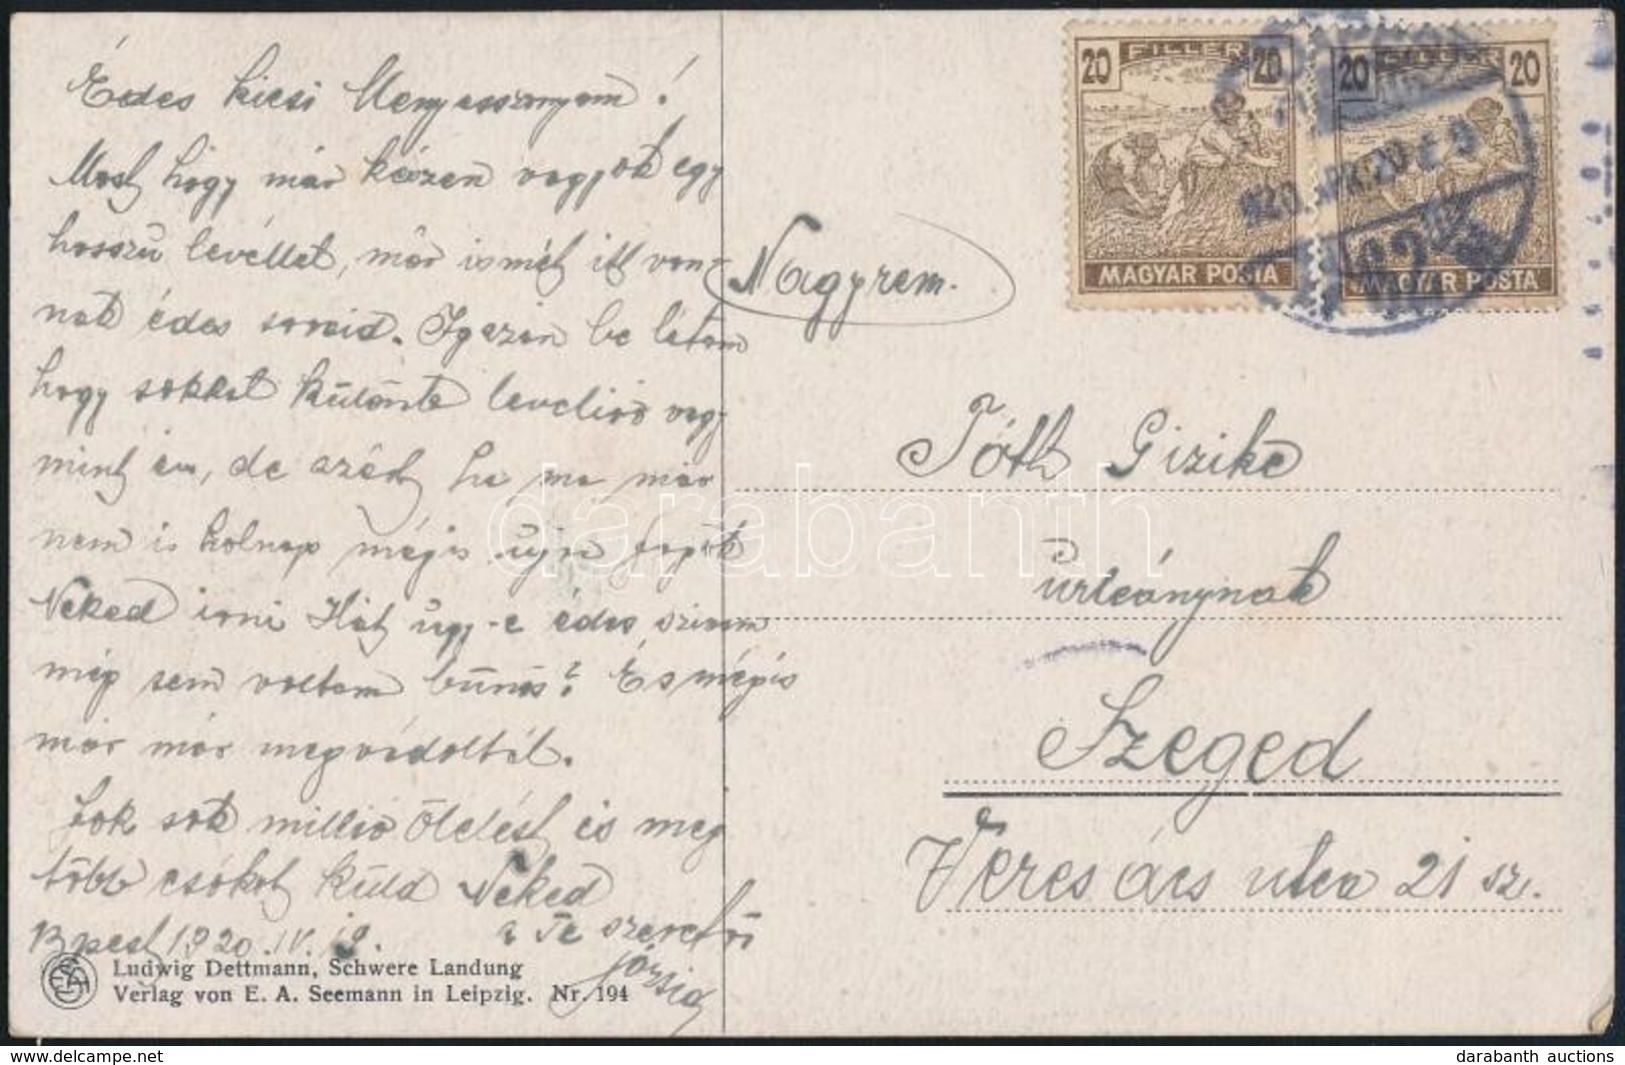 Édes kicsi Menyasszonyom!
Most hogy már készen vagyok egy
hosszú levéllel, már ismét itt van-
nak édes soraid. Igazán be látom
hogy sokkal különb levéliró vagy
mint én, de azért ha ma már
nem is holnap mégis ujra fogok
Neked irni Hát ugy-e édes szivem
még sem voltam bünös? És mégis
már már megvádoltál.
Sok sok millió ölelést és még
több csókot küld Neked
a Te szerető
Józsid
Bpest 1920. IV. 19.
Ludwig Dettmann, Schwere Landung
Verlag von E. A. Seemann in Leipzig. Nr. 194
Nagyrem.
20 FILLÉR 20
MAGYAR POSTA
20 FILLÉR 20
MAGYAR POSTA
920. APR. 20
Tóth Gizike
urleánynak
Szeged
Veres ács utca 21 sz.
darabanth
www.darabanth.com
darabanth auctions